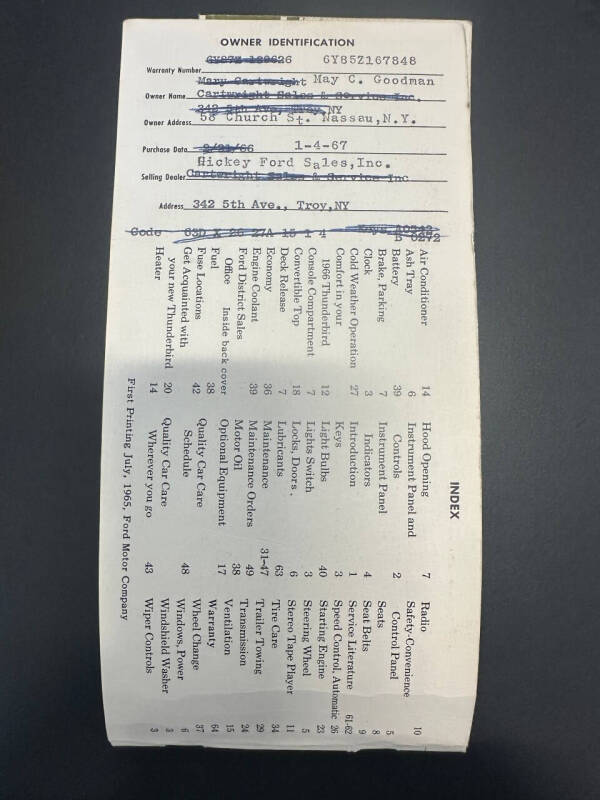 OWNER IDENTIFICATION
6Y87Z 189626 6Y85Z167848
Warranty Number
Mary Cartwright May C. Goodman
Owner Name Cartwright Sales & Service Inc.
342 5th Ave, Troy, NY
Owner Address 58 Church St. Nassau, N.Y.
Purchase Date 2/21/66 1-4-67
Hickey Ford Sales, Inc.
Selling Dealer Cartwright Sales & Service Inc
Address 342 5th Ave., Troy, NY
Code 63D X 26 27A 15 1 4 Keys
B 0272
INDEX
Air Conditioner 14
Ash Tray 6
Battery 39
Brake, Parking 7
Clock 3
Cold Weather Operation 27
Comfort in your
1966 Thunderbird 12
Console Compartment 7
Convertible Top 18
Deck Release 7
Economy 36
Engine Coolant 39
Ford District Sales
Office Inside back cover
Fuel 38
Fuse Locations 42
Get Acquainted with
your new Thunderbird 20
Heater 14
Hood Opening 7
Instrument Panel and
Controls 2
Instrument Panel
Indicators 4
Introduction 1
Keys 3
Light Bulbs 40
Lights Switch 3
Locks, Doors 6
Lubricants 63
Maintenance 31-47
Maintenance Orders 49
Motor Oil 38
Optional Equipment 17
Quality Car Care
Schedule 48
Quality Car Care
Wherever you go 43
Radio 10
Safety-Convenience
Control Panel 5
Seats 8
Seat Belts 9
Service Literature 61-62
Speed Control, Automatic 26
Starting Engine 23
Steering Wheel 5
Stereo Tape Player 11
Tire Care 34
Trailer Towing 29
Transmission 24
Ventilation 15
Warranty 64
Wheel Change 37
Windows, Power 6
Windshield Washer 3
Wiper Controls 3
First Printing July, 1965, Ford Motor Company